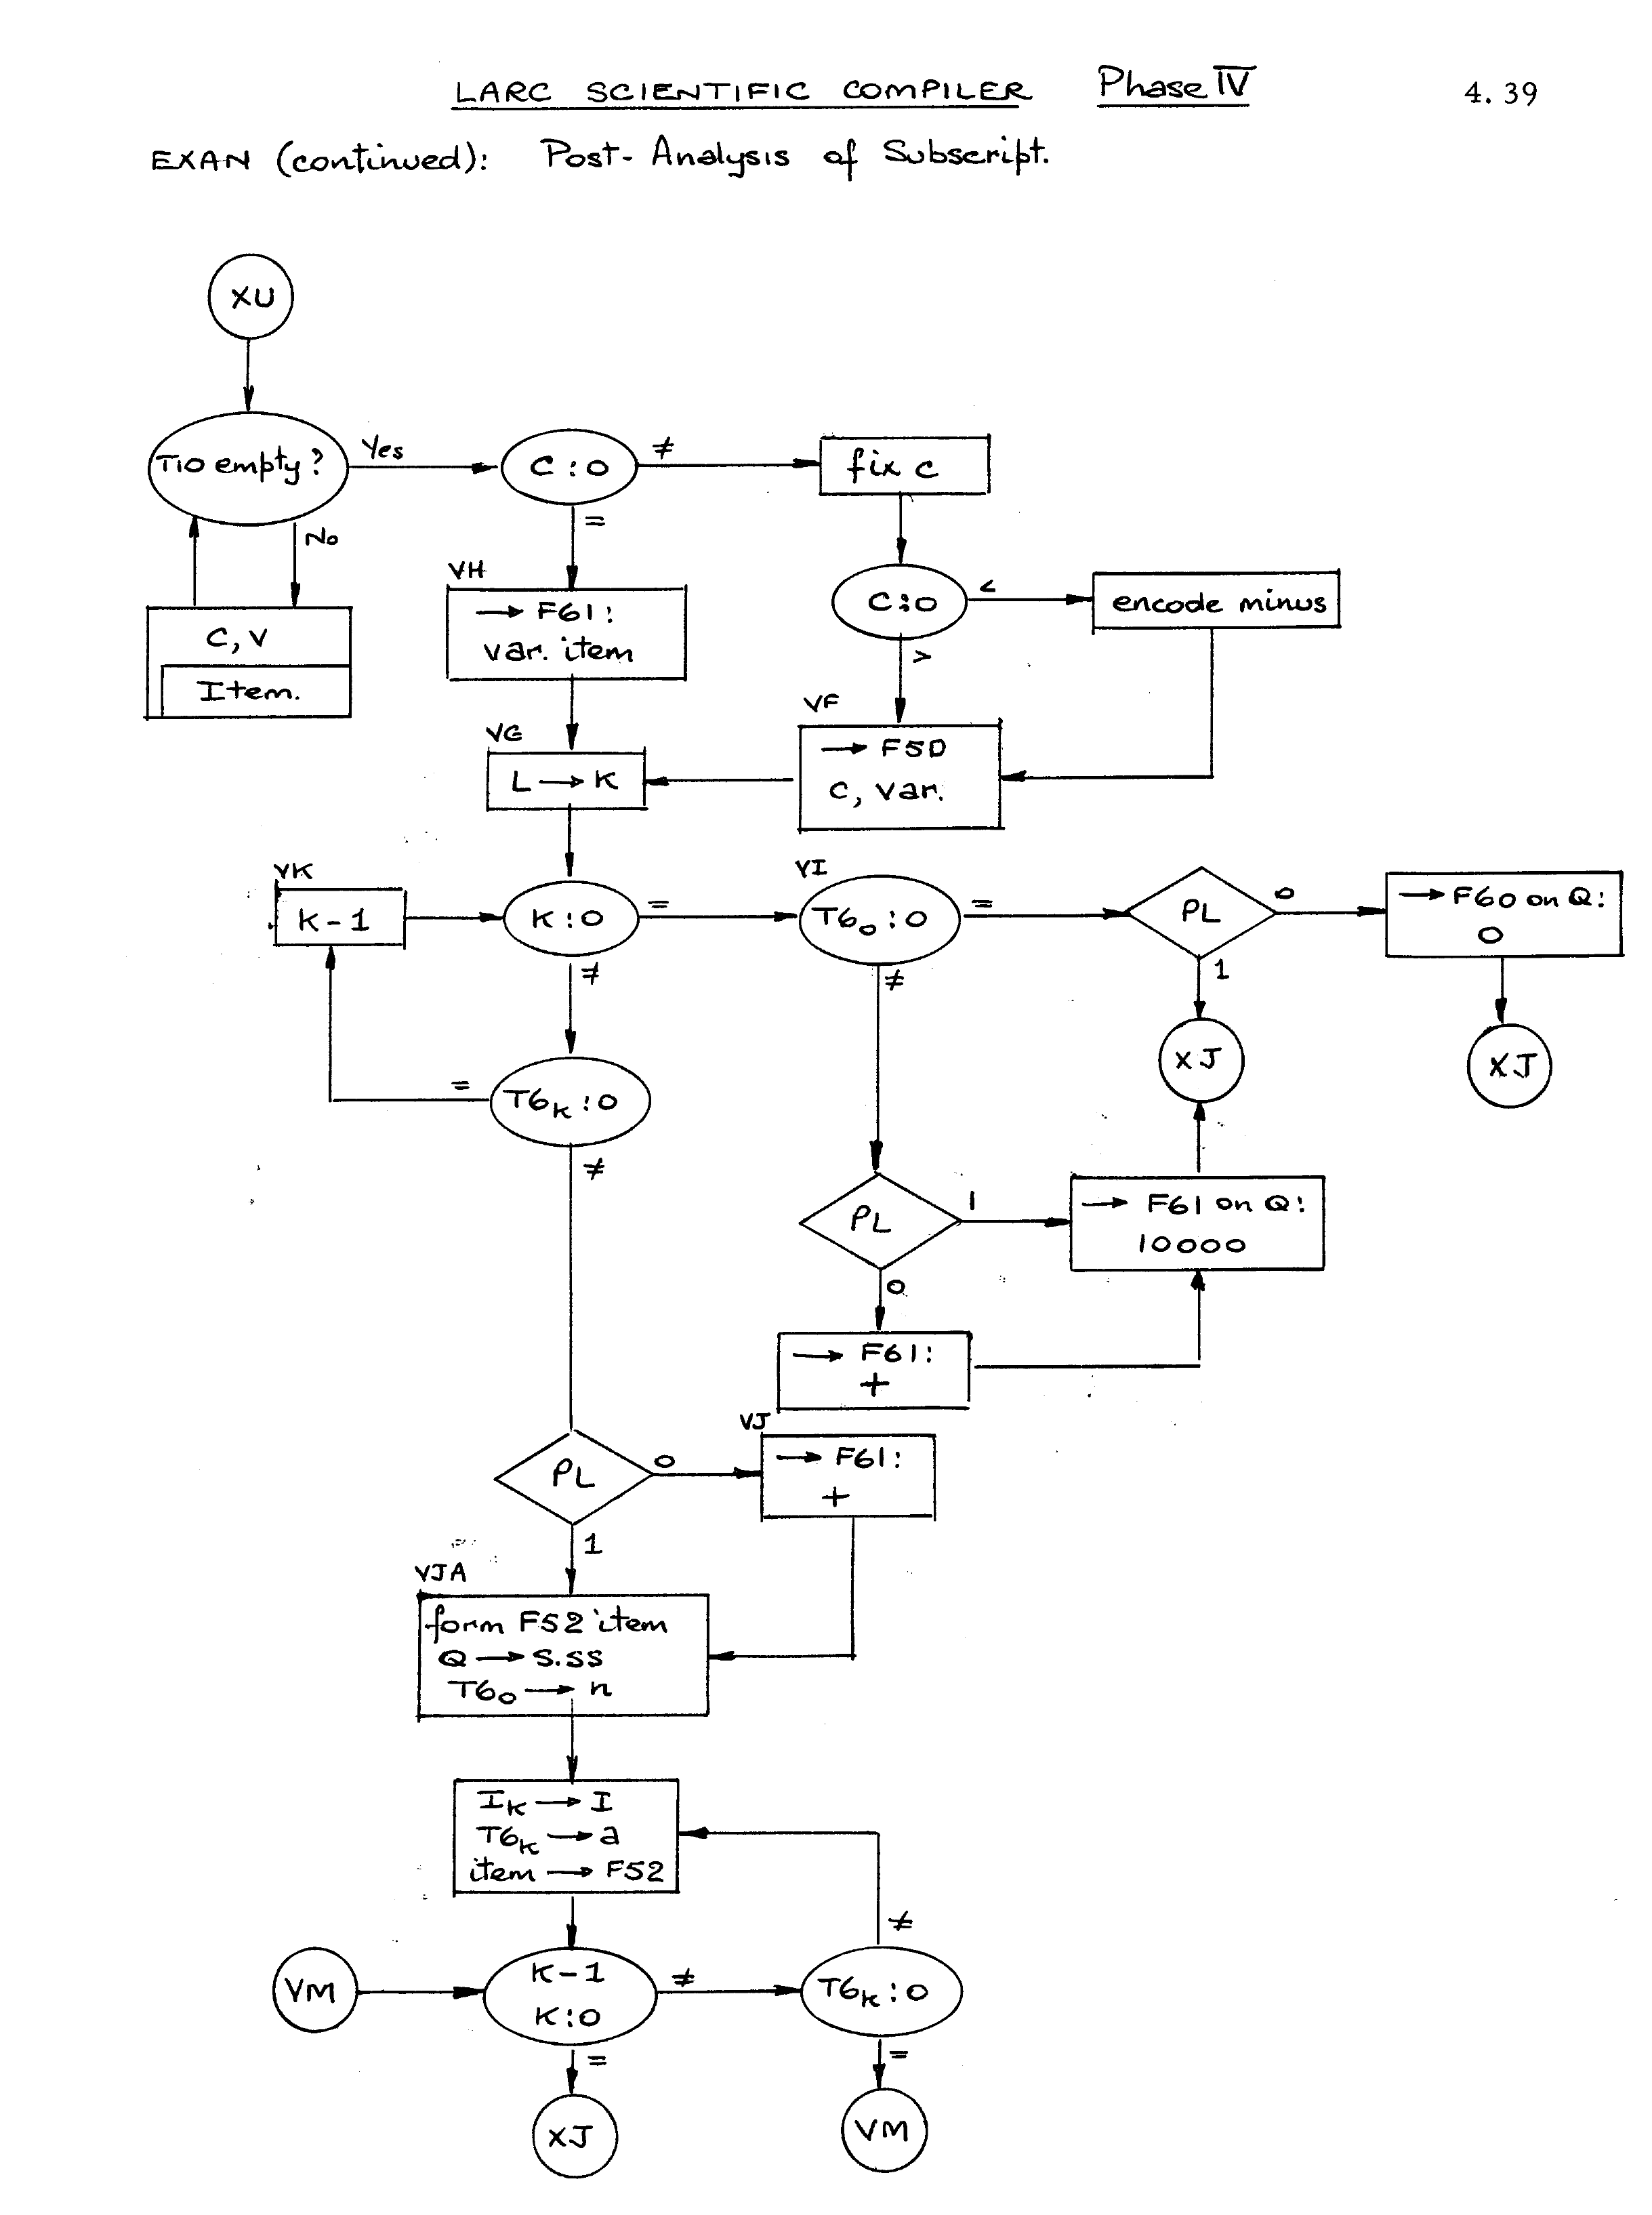 LARC SCIENTIFIC COMPILER Phase IV 4.39
EXAN (continued): Post-Analysis of Subscript.
XU
T10 empty?
Yes
No
C, V
Item.
C:0
≠
=
fix c
C:0
<
>
encode minus
VH
→ F61:
var. item
VF
→ F5D
C, var.
VG
L → K
VK
K-1
K:0
=
≠
VI
T6₀:0
=
≠
PL
0
1
→ F60 on Q:
0
XJ
XJ
T6ₖ:0
=
≠
PL
1
0
→ F61 on Q:
10000
→ F61:
+
PL
0
1
VJ
→ F61:
+
VJA
form F52 item
Q → S.SS
T6₀ → n
Iₖ → I
T6ₖ → a
item → F52
VM
K-1
K:0
≠
=
T6ₖ:0
≠
=
XJ
VM